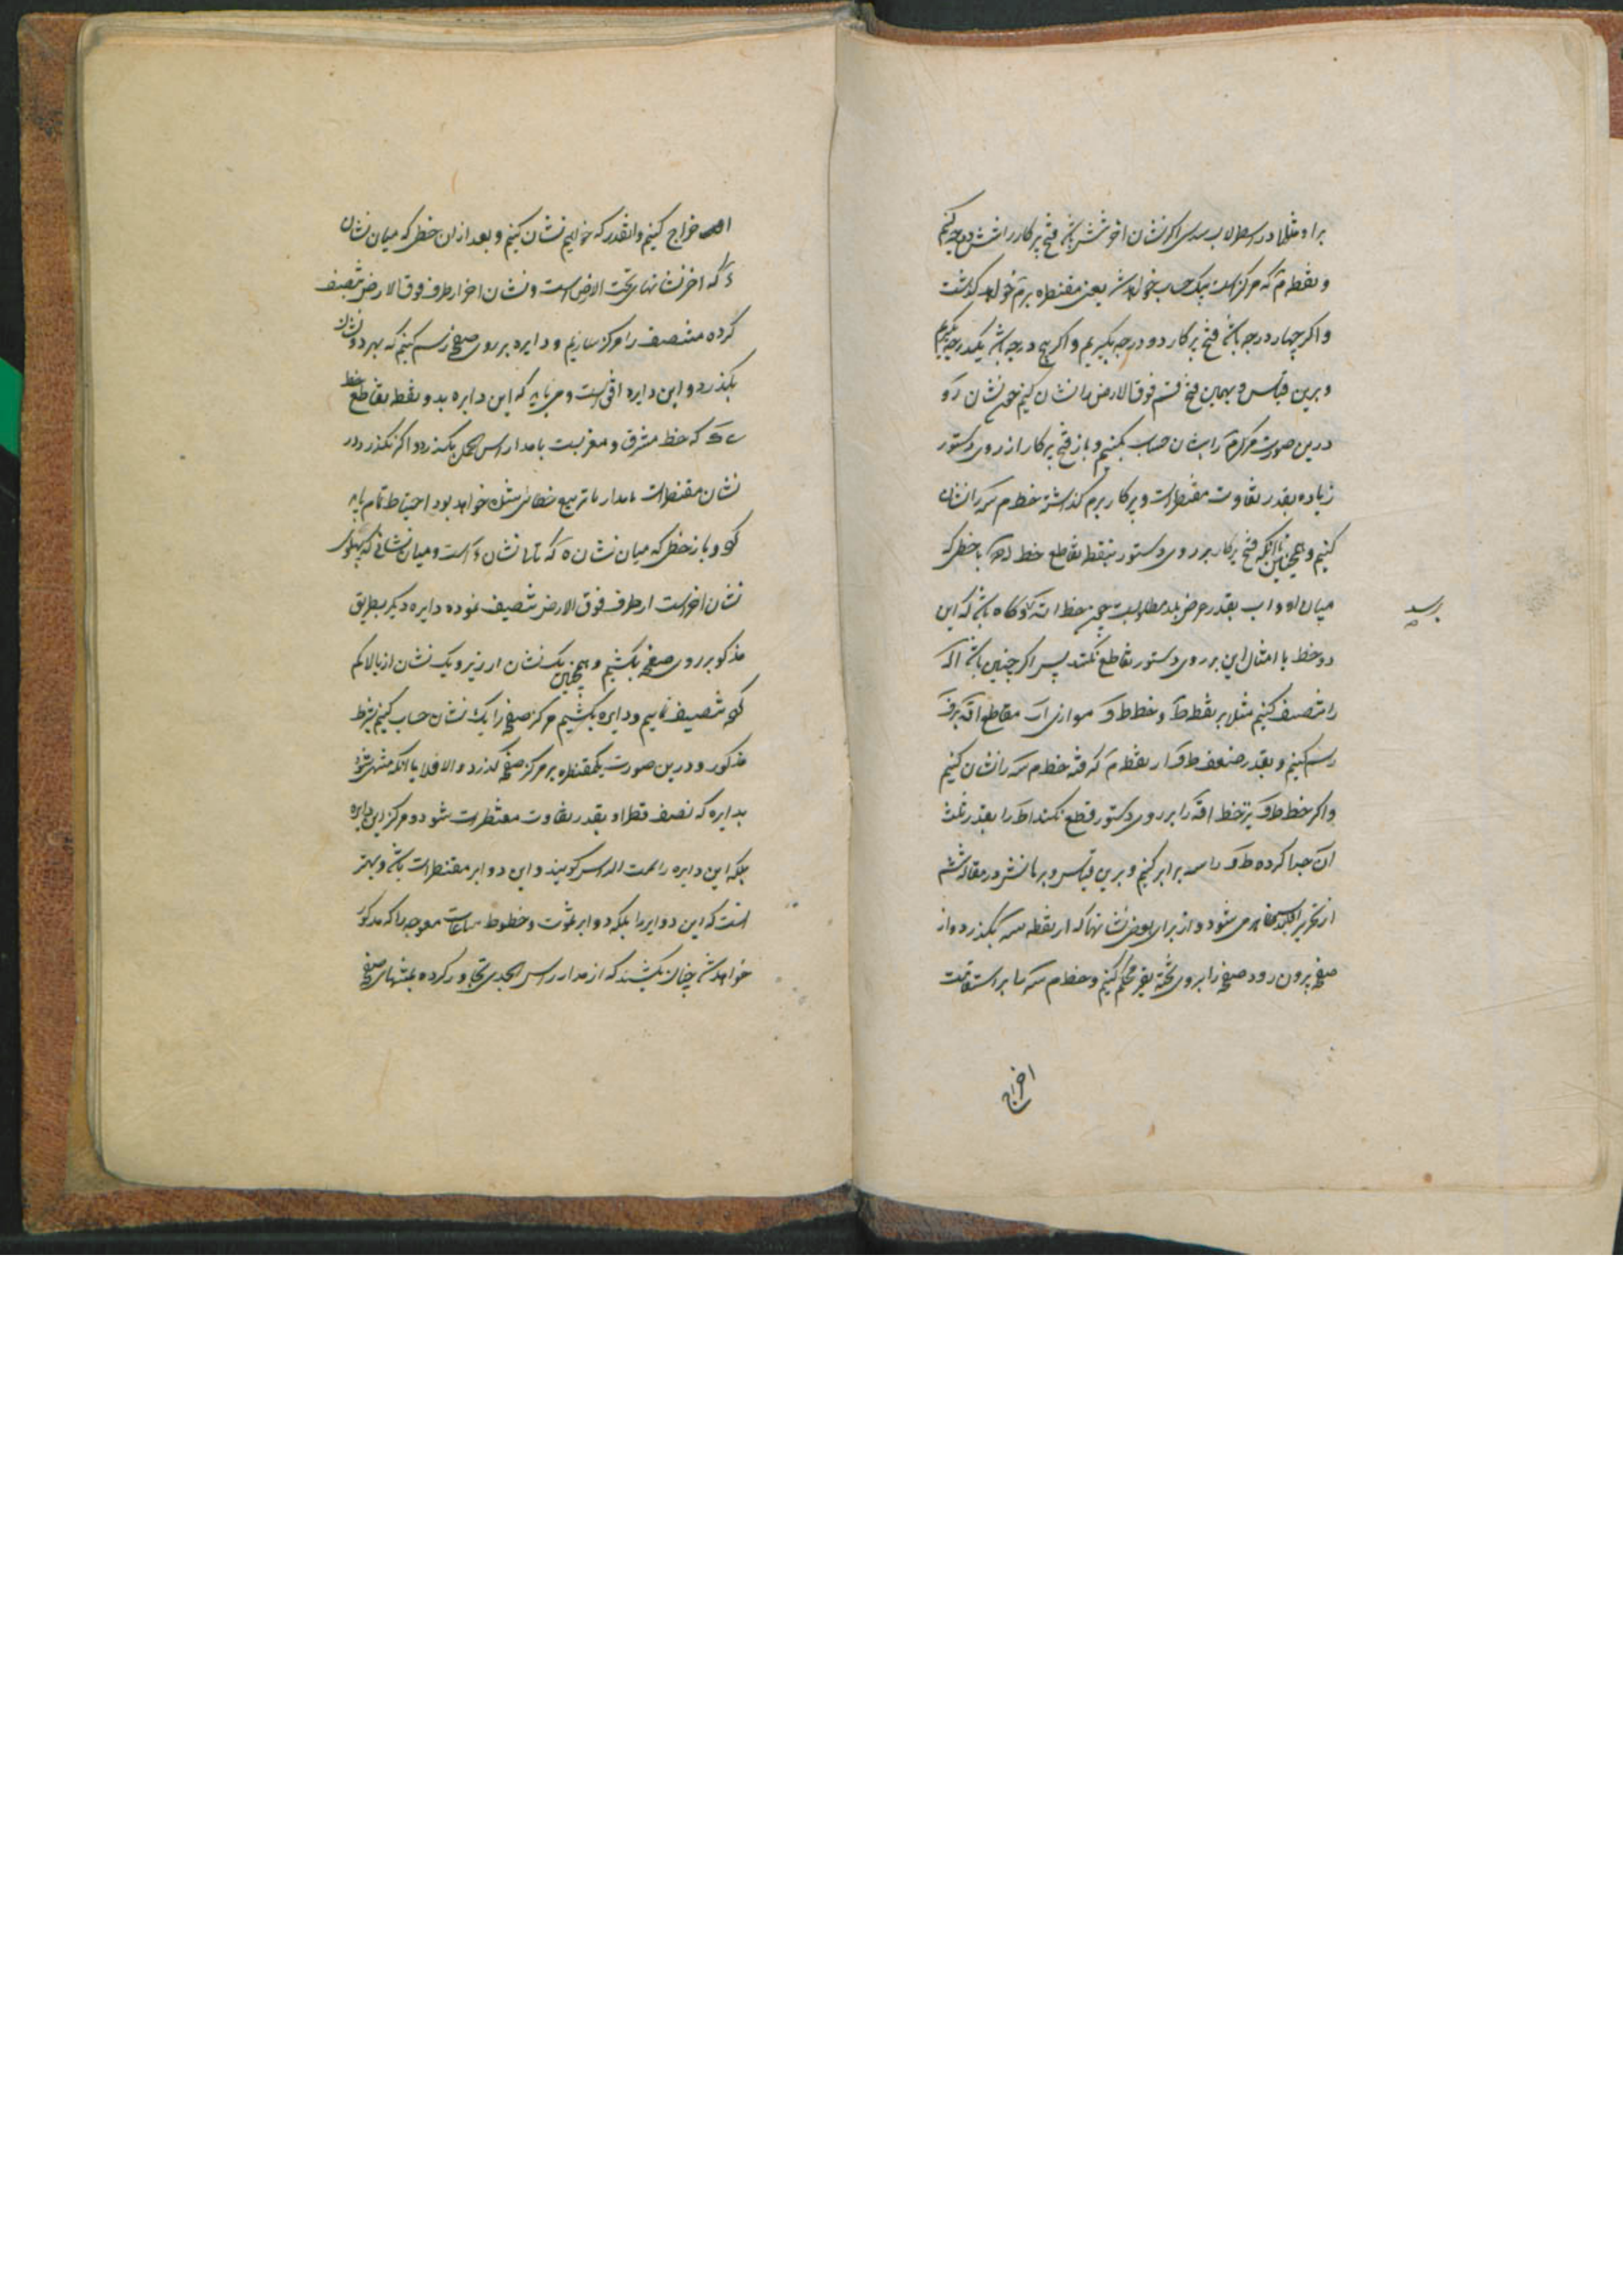 براه مثلا در اسطرلاب سدسی اگر نشان اخر شش باشد فتح پرکار را شش درجه کنیم
و نقطه م که مرکز است یک حساب خواهد شد یعنی مقنطره بر م خواهد گذشت
و اگر چهار درجه باشد فتح پرکار دو درجه بگیریم و اگر پنج درجه باشد یکدرجه بگیریم
و برین قیاس و بهمین فتح قسم فوق الارض را نشان کنیم چون نشان
درین صورت مرکز م را نشان حساب نکنیم و باز فتح پرکار از روی دستور
زیاده بقدر تفاوت مقنطرات و پرکار بر م گذاشته خط م سه را نشان
کنیم و همچنین تا آنکه فتح پرکار بر روی دستور بنقطه تقاطع خط با خطی که
میان او و ا ب بقدر عرض بلد مطلوبست چون خط گاه باشد که این
برسد
دو خط یا امثال این بر روی دستور تقاطع نکنند پس اگر چنین باشد
را تنصیف کنیم مثلا بر نقطه ط و خط ط ق موازی ا ب مقاطع
رسم کنیم و بقدر ضعف ط ق از نقطه م گرفته خط م سه را نشان کنیم
و اگر خط ط ق نیز خط را بر روی دستور قطع نکند ا ط را بقدر ثلث
آن جدا کرده ط ق را سه برابر کنیم و برین قیاس و برهانش در مقاله ششم
از تحریر اقلیدس ظاهر می شود و از برای بعض نشانها که از نقطه سه بگذرد و از
صفحه بیرون رود صفحه را بر روی تخته بقیر محکم کنیم و خط م سه را بر استقامت
اخراج
اخراج کنیم و آنقدر که خواهیم نشان کنیم و بعد ازان خطی که میان نشان
که اخر نشانهای تحت الارض است و نشان اخر از طرف فوق الارض تنصیف
کرده منتصف را مرکز سازیم و دایره بر روی صفحه رسم کنیم که بهر دو نشان
بگذرد و این دایره افق است و می باید که این دایره بدو نقطه تقاطع خط
که خط مشرق و مغربست با مدار راس الحمل بگذرد و اگر نگذرد در
نشان مقنطرات یا مدار یا تربیع خطائی شده خواهد بود احتیاط تمام باید
کرد و باز خطی که میان نشان که تا نشان است و میان نشانی که پهلوی
نشان اخر است از طرف فوق الارض تنصیف نموده دایره دیگر بطریق
مذکور بر روی صفحه بکشیم و همچنین یک نشان از زیر و یک نشان از بالا کم
کرده تنصیف نماییم و دایره بکشیم مرکز صفحه را یک نشان حساب کنیم بشرط
مذکور و درین صورت یکمقنطره بر مرکز صفحه گذرد و الا فلا تا آنکه منتهی شود
بدایره که نصف قطر او بقدر تفاوت مقنطرات شود و مرکز این دایره
بلکه این دایره را سمت الراس گویند و این دوایر مقنطرات باشد و بهتر
آنست که این دوایر را بلکه دوایر سموت و خطوط ساعات معوجه را که مذکور
خواهد شد چنان بکشند که از مدار راس الجدی تجاوز کرده بمنتهای صفحه